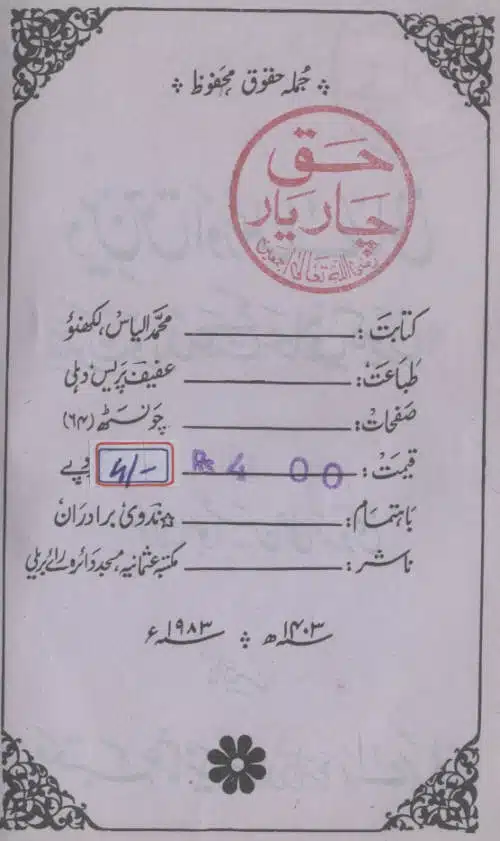 جُملہ حقوق محفوظ
حق
چار یار
رضی اللہ تعالیٰ اجمعین
کتابت: محمد الیاس، لکھنؤ
طباعت: عفیف پریس دہلی
صفحات: چونسٹھ (۶۴)
قیمت: Rs 4 00 روپے
باہتمام: ندوی برادران
ناشر: مکتبہ عثمانیہ، مسجد دائرہ رائے بریلی
۱۴۰۳ھ ۱۹۸۳ء